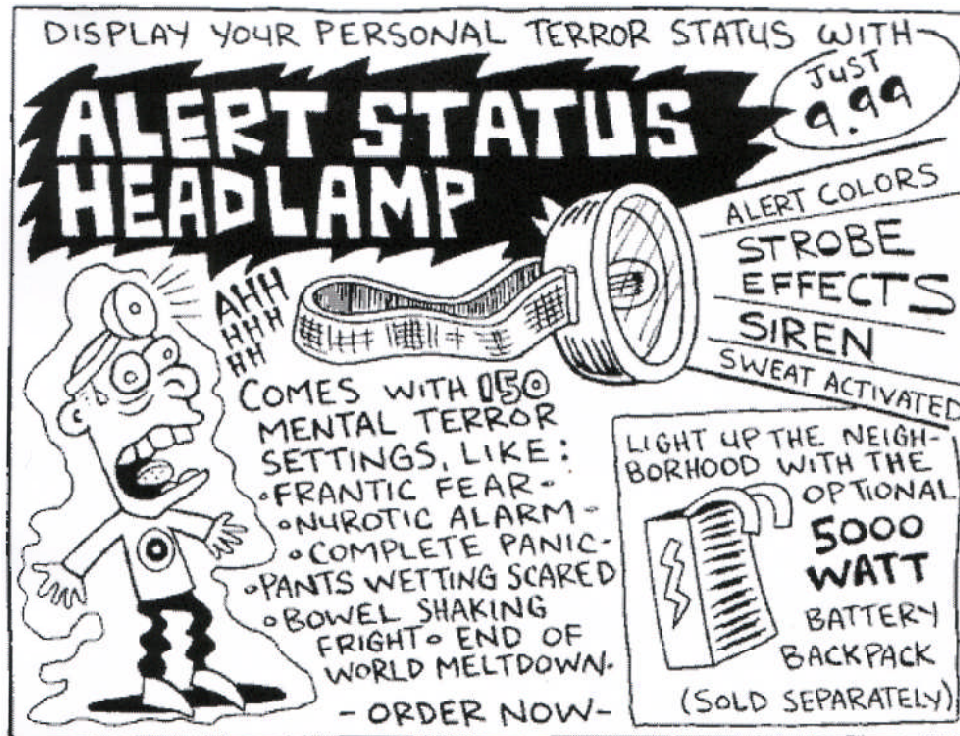 DISPLAY YOUR PERSONAL TERROR STATUS WITH
JUST
9.99
ALERT STATUS
HEADLAMP
ALERT COLORS
STROBE
EFFECTS
SIREN
SWEAT ACTIVATED
AHH
HHH
HH
COMES WITH 150
MENTAL TERROR
SETTINGS, LIKE:
•FRANTIC FEAR•
•NUROTIC ALARM-
•COMPLETE PANIC-
•PANTS WETTING SCARED
•BOWEL SHAKING
FRIGHT• END OF
WORLD MELTDOWN.
-ORDER NOW-
LIGHT UP THE NEIGH-
BORHOOD WITH THE
OPTIONAL
5000
WATT
BATTERY
BACKPACK
(SOLD SEPARATELY)